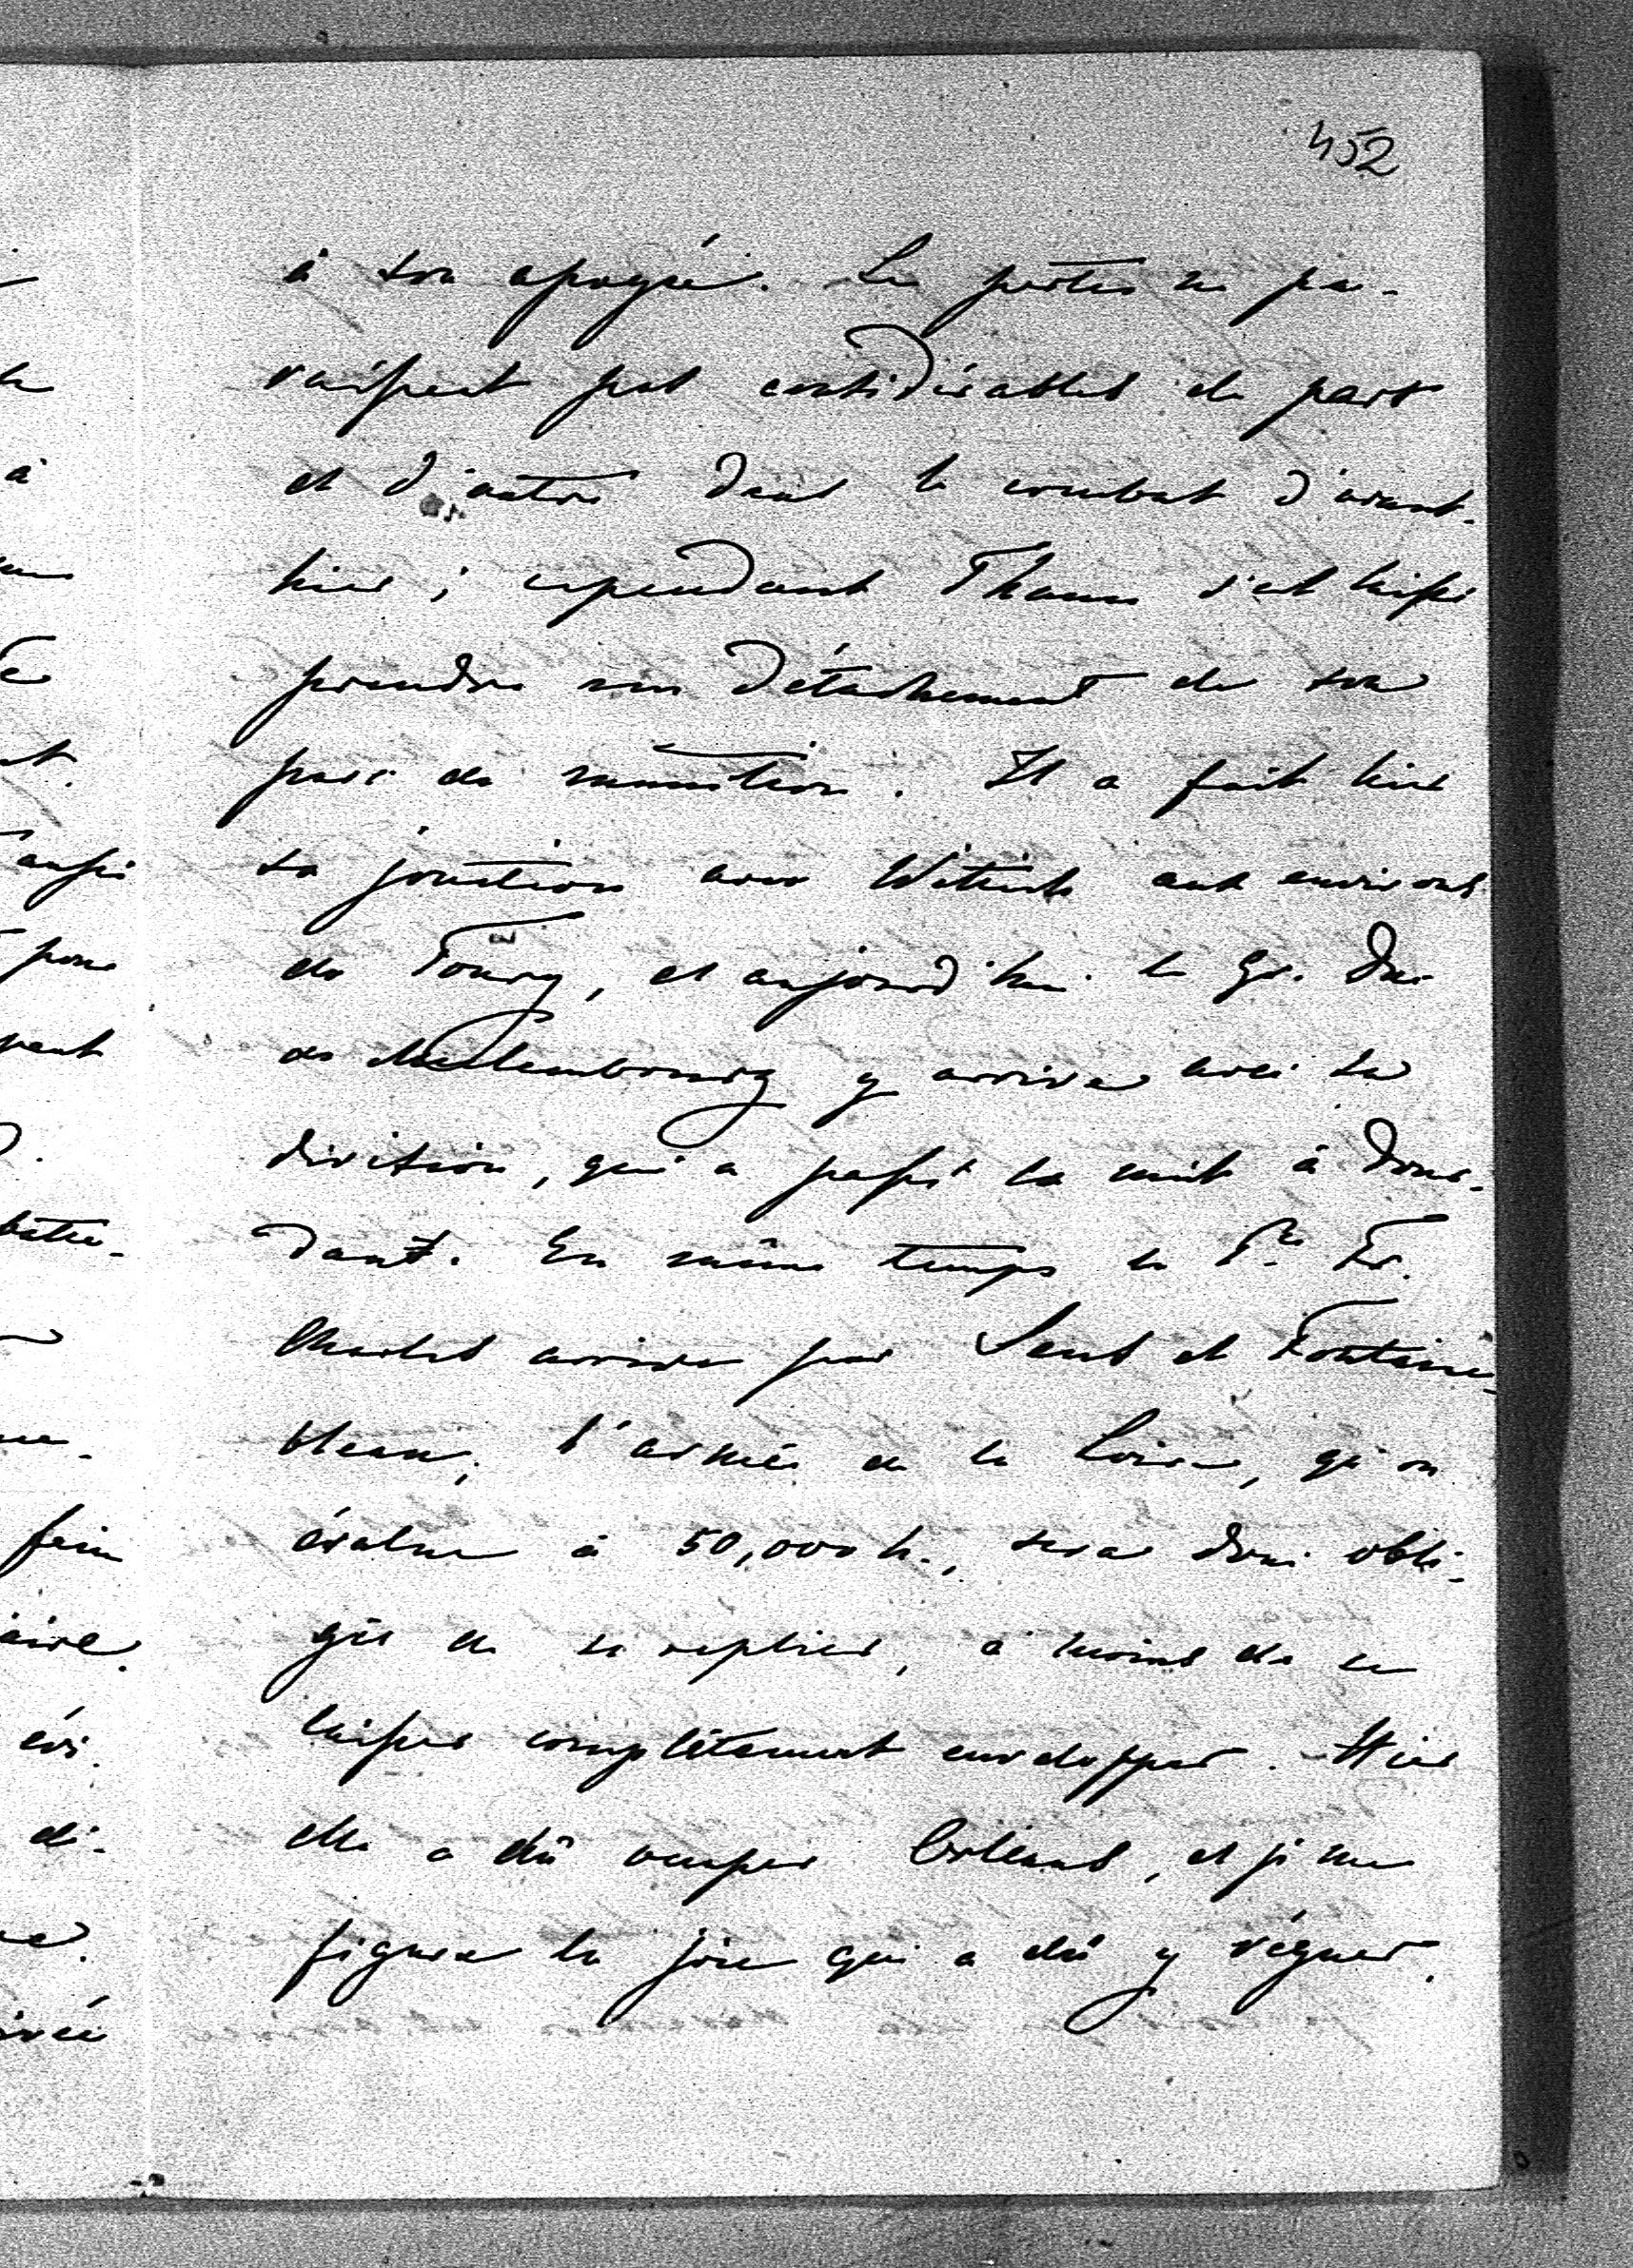 452
à son apogée. Les pertes ne pa-
raissent pas considérables de part
et d'autre dans le combat d'avant-
hier; cependant Thann s'est laissé
prendre un détachement de son
parc de munition. Il a fait hier
sa jonction avec Wittich aux environs
de Toury, et aujourd'hui le Gr. Duc
de Mecklembourg y arrive avec sa
division, qui a passé la nuit à Dour-
dant. En même temps le Pce Fr.
Charles arrive par Sens et Fontaine-
bleau; l'armée de la Loire, qu'on
évalue à 50,000 h., sera donc obli-
gée de se replier, à moins de se
laisser complètement envelopper. Hier
elle a dû occuper Orléans, et je me
figure la joie qui a dû y régner.